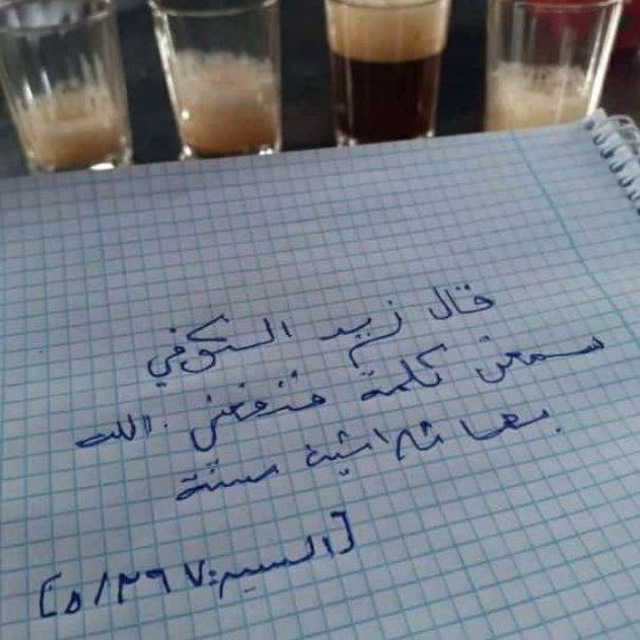 قال زبيد الكوفي
سمعت كلمة فنفعني الله
بها ثلاثين سنة
[السير: ٥/٢٩٧]